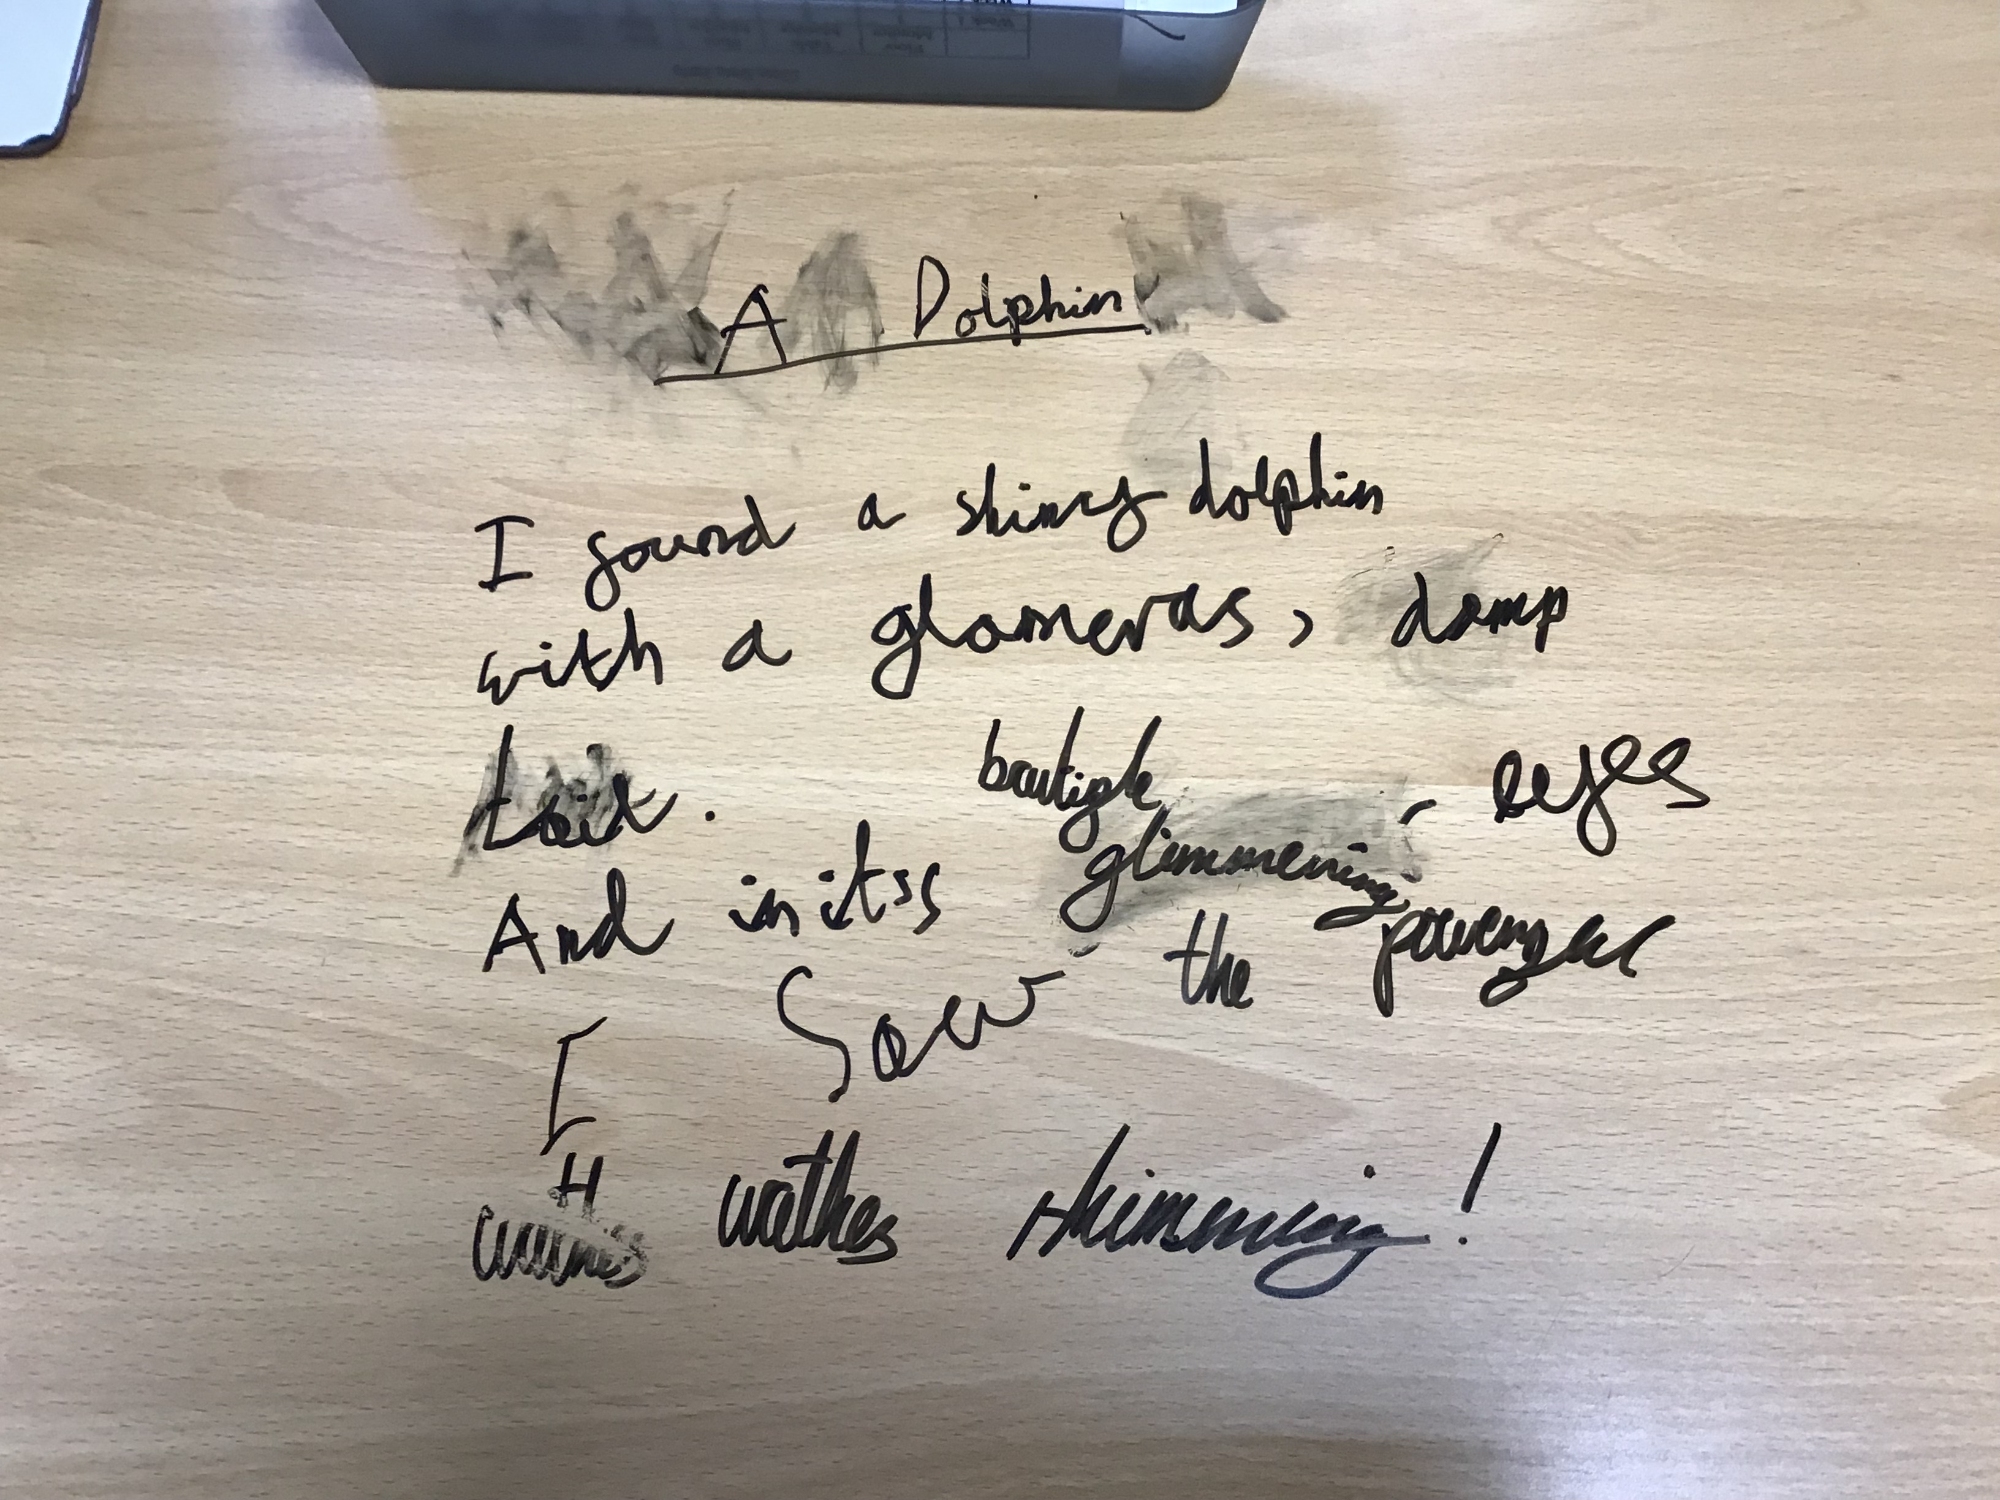 A Dolphin
I found a shiney dolphin
with a glameras, damp
tail.
And in itss beutigle glimmering, eyes
I Sow the powerful
H wathes shimmering!